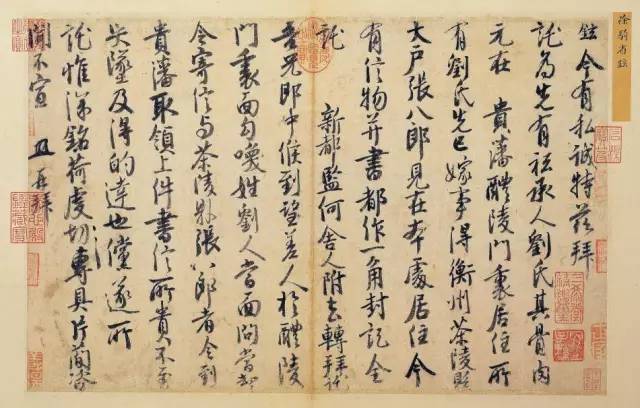 徐騎省鉉
鉉今有私誠特茲拜
託為先有祗承人劉氏其骨肉
元在 貴藩醴陵門裏居住所
有劉氏先已嫁事得衡州茶陵縣
大戶張八郎見在本處居住今
有信物并書都作一角封記全
託 新都監何舍人附去轉拜託
吾兄郎中候到望差人於醴陵
門裏面勾喚姓劉人當面問當却
令寄信与茶陵縣張八郎者令到
貴藩取領上件書信所貴不至
失墜及得的達也儻遂所
託惟深銘荷虔切專具片簡諮
聞不宣 再拜